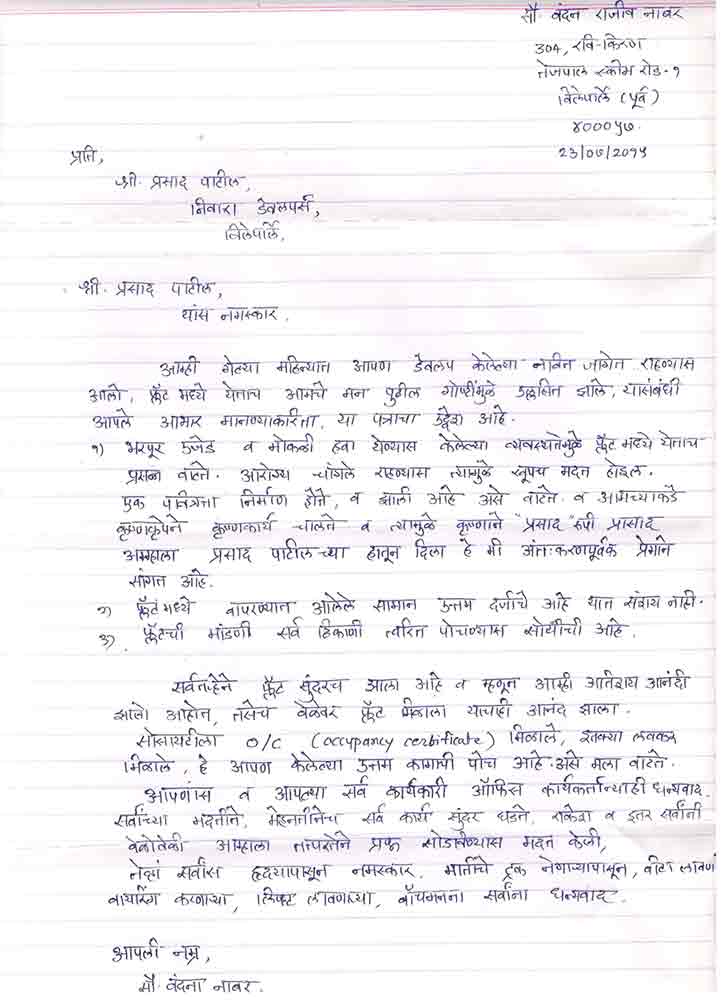 सौ. वंदन राजीव नाबर
३०४, रवि-किरण
तेजपाल स्कीम रोड-१
विलेपार्ले (पूर्व)
४०००५७.
२३/०७/२०१५
प्रति,
श्री. प्रसाद पाटील,
निवारा डेवलपर्स,
विलेपार्ले,
श्री. प्रसाद पाटील,
यांस नमस्कार.
आम्ही गेल्या महिन्यात आपण डेवलप केलेल्या नविन जागेत राहण्यास
आलो, फ्लॅट मध्ये येताच आमचे मन पुढील गोष्टींमुळे उल्हसित झाले, यासंबंधी
आपले आभार मानण्याकरिता, या पत्राचा उद्देश आहे.
१) भरपूर उजेड व मोकळी हवा येण्यास केलेल्या व्यवस्थेमुळे फ्लॅट मध्ये येताच
प्रसन्न वाटते. आरोग्य चांगले राहण्यास त्यामुळे खूपच मदत होइल.
एक पवित्रता निर्माण होते, व झाली आहे असे वाटते. व आमच्याकडे
कृष्णकृपेने कृष्णकार्य चालते व त्यामुळे कृष्णाने "प्रसाद" रुपी प्रासाद
आम्हाला प्रसाद पाटील-च्या हातून दिला हे मी अंतःकरणपूर्वक प्रेमाने
सांगत आहे.
२) फ्लॅटमध्ये वापरण्यात आलेले सामान उत्तम दर्जाचे आहे यात संशय नाही.
३) फ्लॅटची मांडणी सर्व ठिकाणी त्वरित पोचण्यास सोयीची आहे.
सर्वतर्‍हेने फ्लॅट सुंदरच झाला आहे व म्हणून आम्ही अतिशय आनंदी
झालो आहोत, तसेच वेळेवर फ्लॅट मिळाला याचाही आनंद झाला.
सोसायटीला O/C (occupancy certificate) मिळाले, इतक्या लवकर
मिळाले, हे आपण केलेल्या उत्तम कामाची पोच आहे. असे मला वाटते.
आपणांस व आपल्या सर्व कार्यकारी ऑफिस कार्यकर्तान्याही धन्यवाद.
सर्वांच्या मदतीने, मेहनतीनेच सर्व कार्य सुंदर घडते. राकेश व इतर सर्वांनी
वेळोवेळी आम्हाला तत्परतेने प्रश्न सोडविण्यास मदत केली,
तेव्हां सर्वांस हृदयापासून नमस्कार. मातीचे ट्रक नेणार्‍यापासून, वीटा लावणं
वायरिंग करणार्‍या, लिफ्ट लावणार्‍या, वॉचमनना सर्वांना धन्यवाद.
आपली नम्र,
सौ. वंदना नाबर.